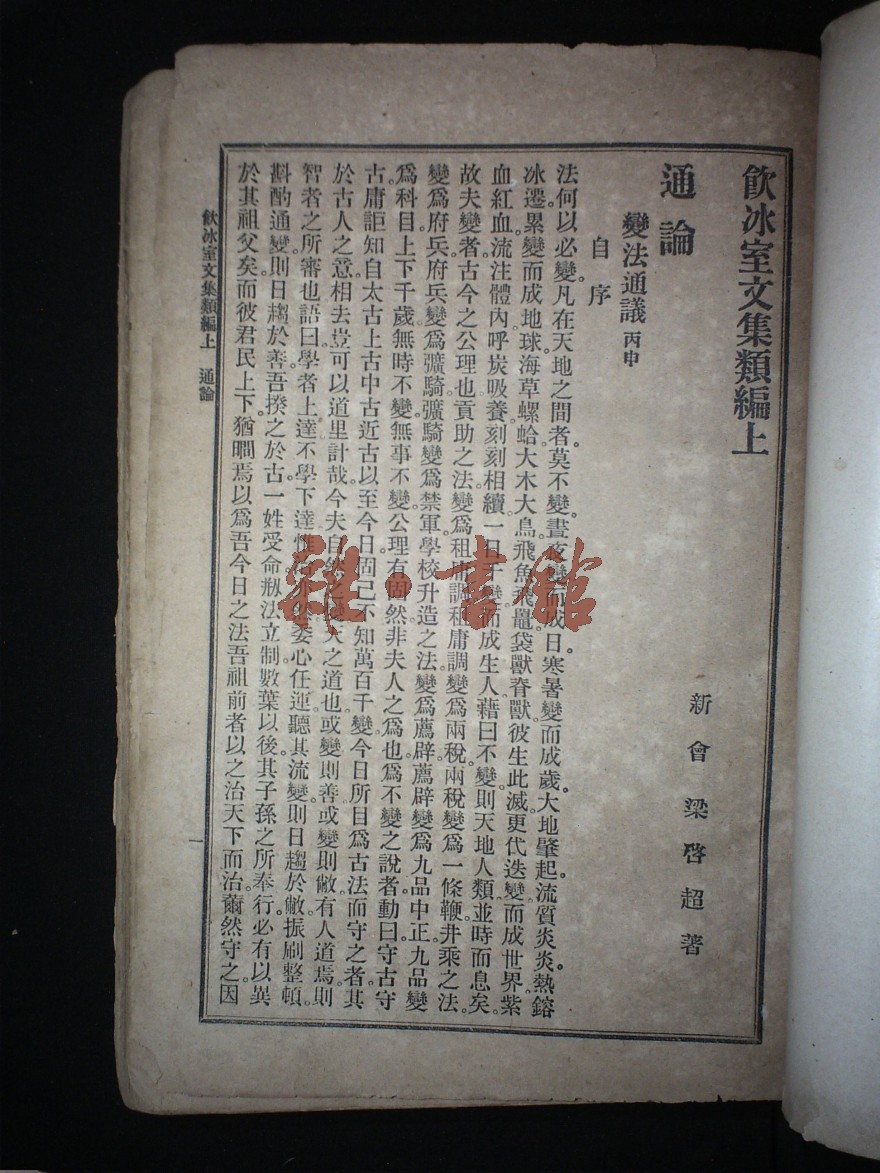 飲冰室文集類編上
新會 梁啓超 著
通論
變法通議 丙申
自序
法何以必變。凡在天地之間者。莫不變。晝夜變而成日。寒暑變而成歲。大地肇起。流質炎炎。熱鎔
冰遷。累變而成地球。海草螺蛤。大木大鳥。飛魚飛鼉。袋獸脊獸。彼生此滅。更代迭變。而成世界。紫
血紅血。流注體內。呼炭吸養。刻刻相續。一日千變。而成生人。藉曰不變。則天地人類。並時而息矣。
故夫變者。古今之公理也。貢助之法。變爲租庸調。租庸調變爲兩稅。兩稅變爲一條鞭。井乘之法。
變爲府兵。府兵變爲彍騎。彍騎變爲禁軍。學校升造之法。變爲薦辟。薦辟變爲九品中正。九品變
爲科目。上下千歲。無時不變。無事不變。公理有固然。非夫人之爲也。爲不變之說者。動曰守古守
古。庸詎知自太古上古中古近古以至今日。固已不知萬百千變。今日所目爲古法而守之者。其
於古人之意。相去豈可以道里計哉。今夫自然之變。天之道也。或變則善。或變則敝。有人道焉。則
智者之所審也。語曰。學者上達。不學下達。惟治亦然。委心任運。聽其流變。則日趨於敝。振刷整頓。
斟酌通變。則日趨於善。吾揆之於古。一姓受命。刱法立制。數葉以後。其子孫之所奉行。必有以異
於其祖父矣。而彼君民上下。猶瞷焉以爲吾今日之法。吾祖前者以之治天下而治。薾然守之。因
飲冰室文集類編上 通論
一
雜·書館